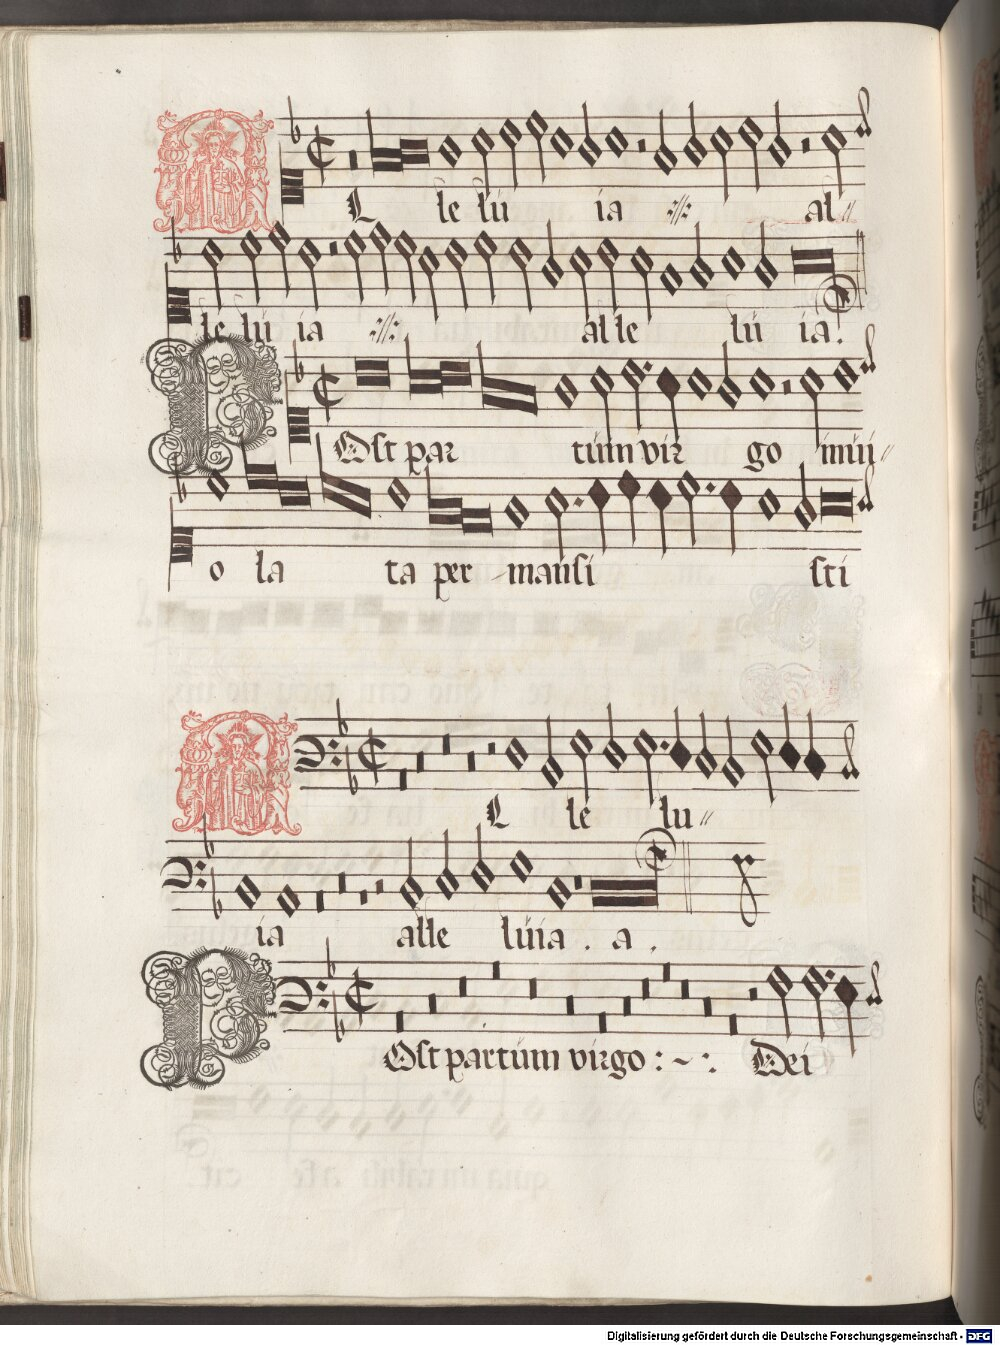 AL le lu ia ://: al〃
le lu ia ://: al le lu ia.
POst par tum vir go invi〃
o la ta per mansi sti
AL le lu〃
ia alle luia . a .
POst partum virgo : ~ : Dei
Digitalisierung gefördert durch die Deutsche Forschungsgemeinschaft - DFG